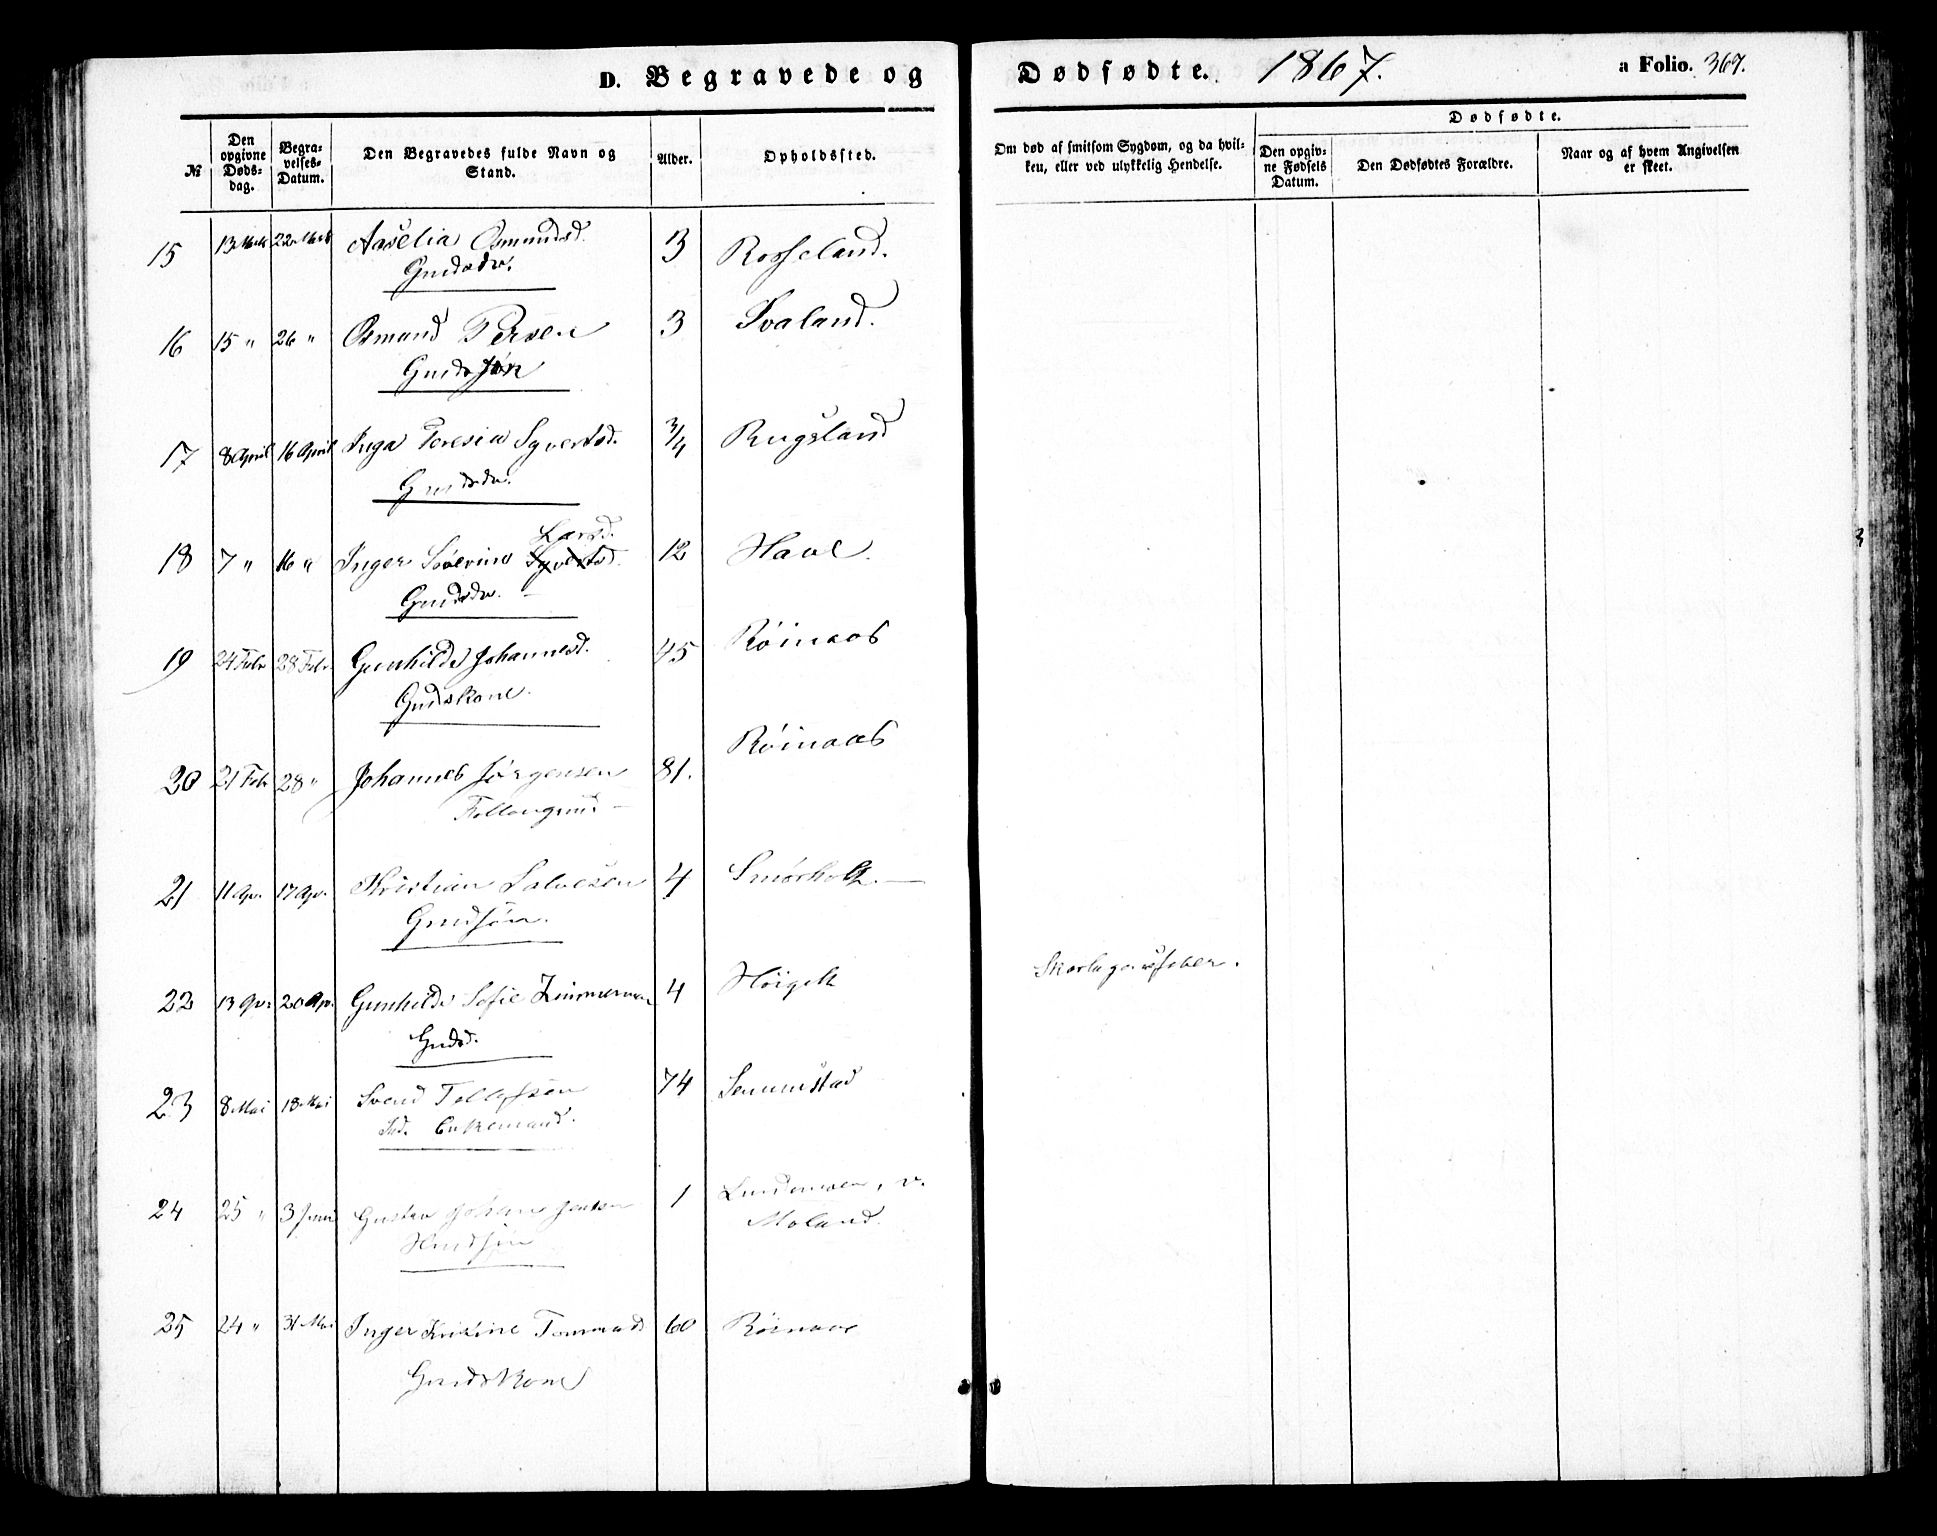 D. Begravede og Dødfødte. 1867. a Folio. 367.
№
Den opgivne Døds-dag.
Begra-velses-Datum.
Den Begravedes fulde Navn og Stand.
Alder.
Opholdssted.
Om død af smitsom Sygdom, og da hvil-ken, eller ved ulykkelig Hendelse.
Dødfødte.
Den opgiv-ne Fødsels Datum.
Den Dødfødtes Forældre.
Naar og af hvem Angivelsen er skeet.
15 13 Mch 22 Mch Aaselia Osmundsd. 3 Rosseland.
Gmdsdr.
16 15 " 26 " Osmund Persen 3 Svaland.
Gmdssøn
17 8 April 16 April Inga Teresia Syvertsd. 3/4 Rugsland
Gmdsdr.
Larsd.
18 7 " 16 " Inger Severine Syvertsd. 12 Have.
Gmdsdr.
19 24 Febr 28 Febr Gunhilde Johannesd. 45 Røinaas
Gmdskone.
20 21 Febr 28 " Johannes Jørgensen 81. Røinaas
21 11 Apr. 17 Apr. Kristian Salvesen 4 Smørholt.
Gmdsøn.
22 13 Apr. 20 Apr. Gunhilde Sofie Zimmerman 4 Høigilt Skarlagensfeber.
Gmdsd.
23 8 Mai 18 Mai Svend Tellefsen 74 Senumstad
Enkemand.
24 25 " 3 Juni Gustav Johan Jensen 1 Lundemoen, v.
Hmdsøn Moland.
25 24 " 31 Mai Inger Kristine Tommasd 60 Røinaas
Gmdskone